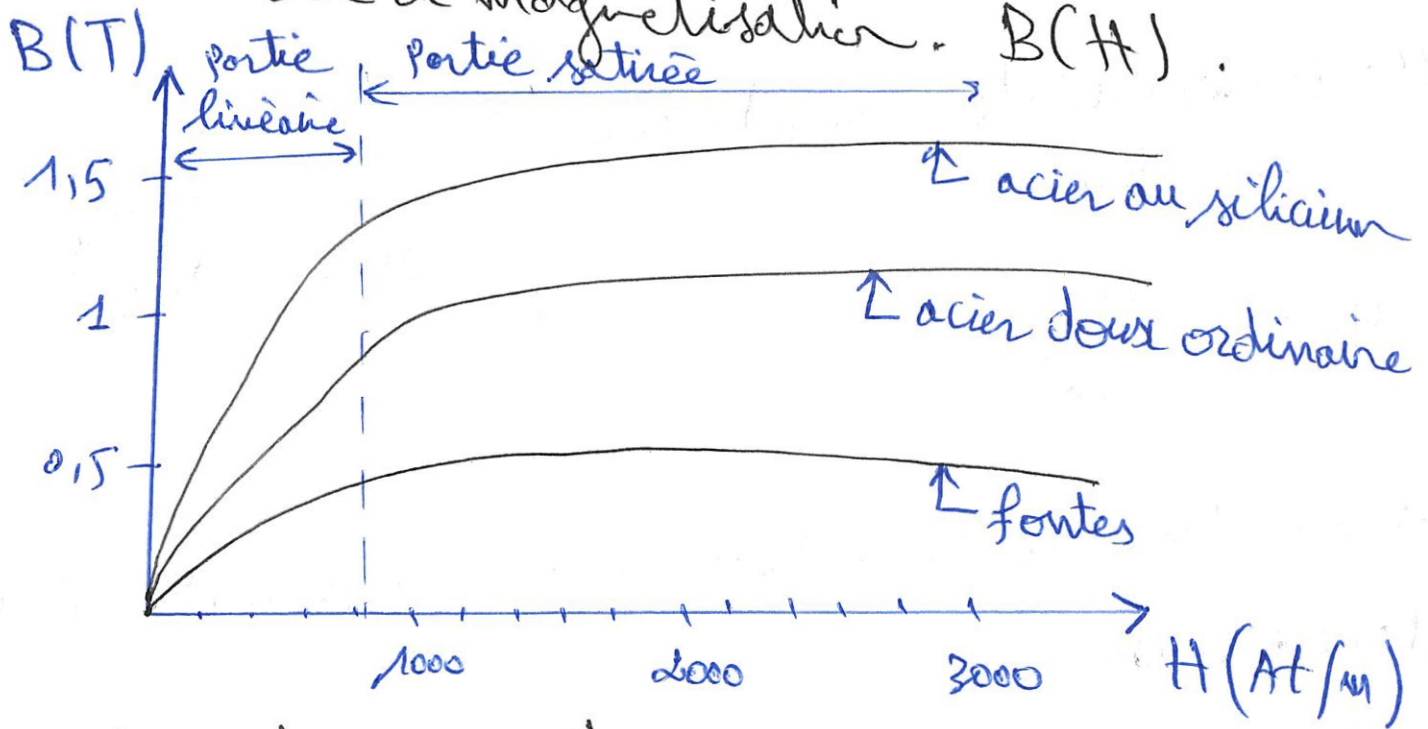 magnétisation. B(H).
B(T)
Partie
linéaire
Partie satirée
1,5
acier au silicium
1
acier doux ordinaire
0,5
fontes
1000
2000
3000
H(At/m)